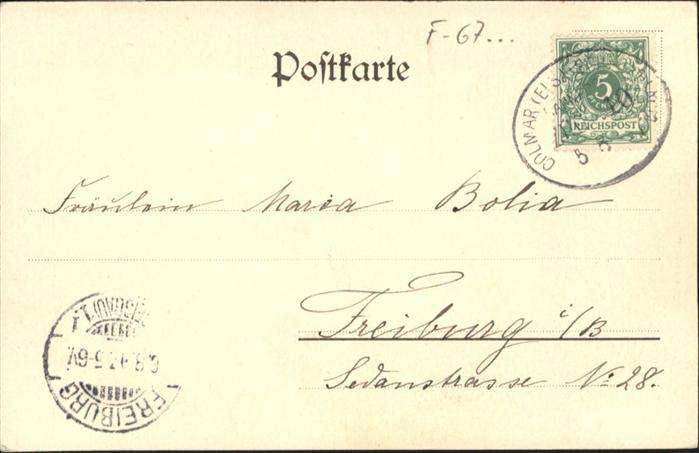 F-67...
Postkarte
5
REICHSPOST
COLMAR (ELS)
5 8
Fräulein Maria Bolia
Freiburg i/B
Sedanstrasse No 28.
FREIBURG